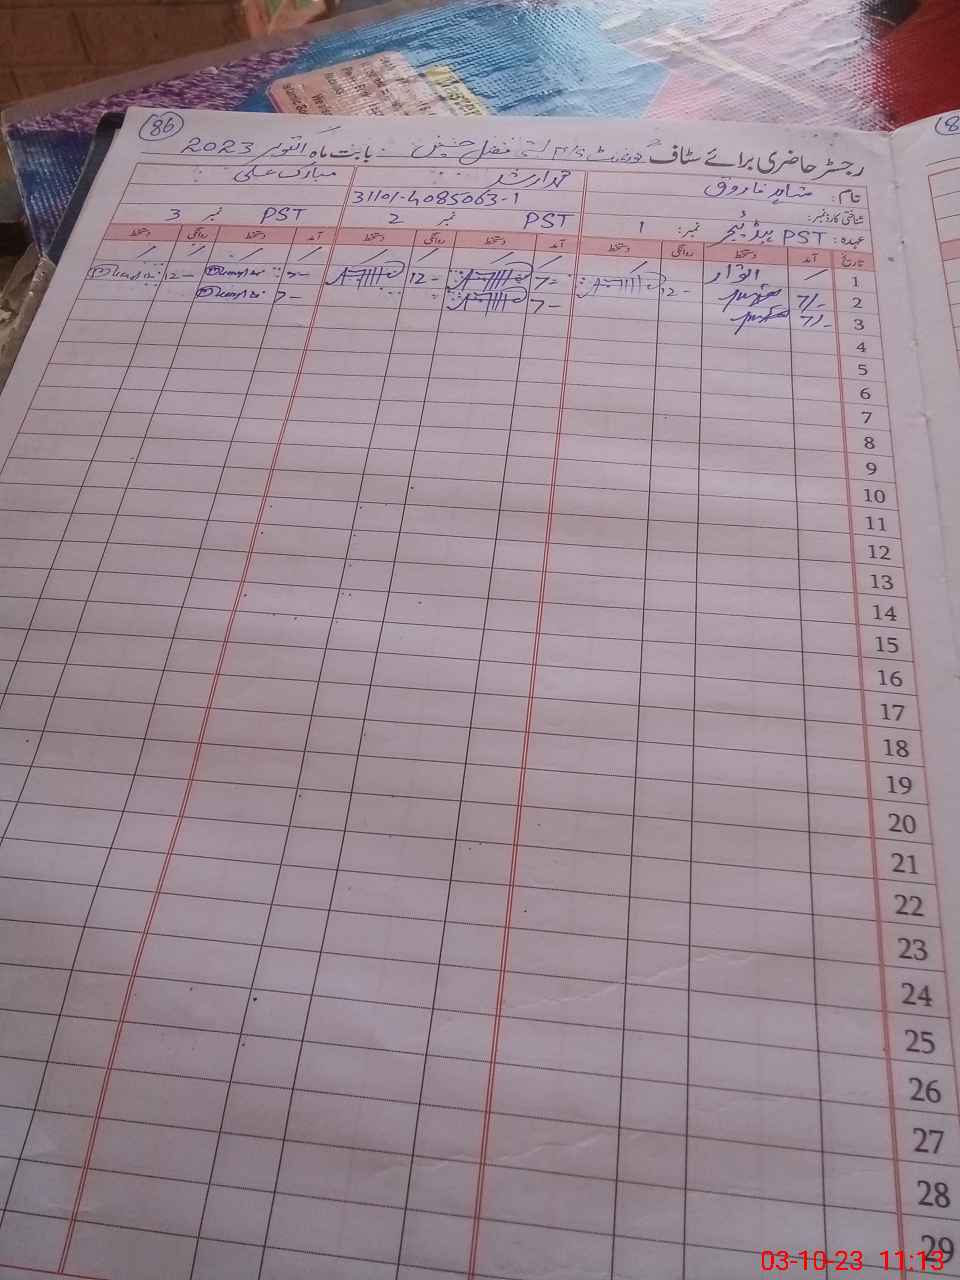 86
رجسٹر حاضری برائے سٹاف گورنمنٹ P/S بستی فضل حسین بابت ماہ اکتوبر 2023
نام: شاہد فاروق محمد ارشد مبارک علی
شناختی کارڈ نمبر: 31101-4085063-1
عہدہ: PST ہیڈ ٹیچر نمبر: 1 PST نمبر 2 PST نمبر 3
تاریخ آمد دستخط روانگی دستخط آمد دستخط روانگی دستخط آمد دستخط روانگی دستخط
1 اتوار
2 7/- 12- 7- 12- 7- 12-
3 7/- 7- 7-
4
5
6
7
8
9
10
11
12
13
14
15
16
17
18
19
20
21
22
23
24
25
26
27
28
29
03-10-23 11:13